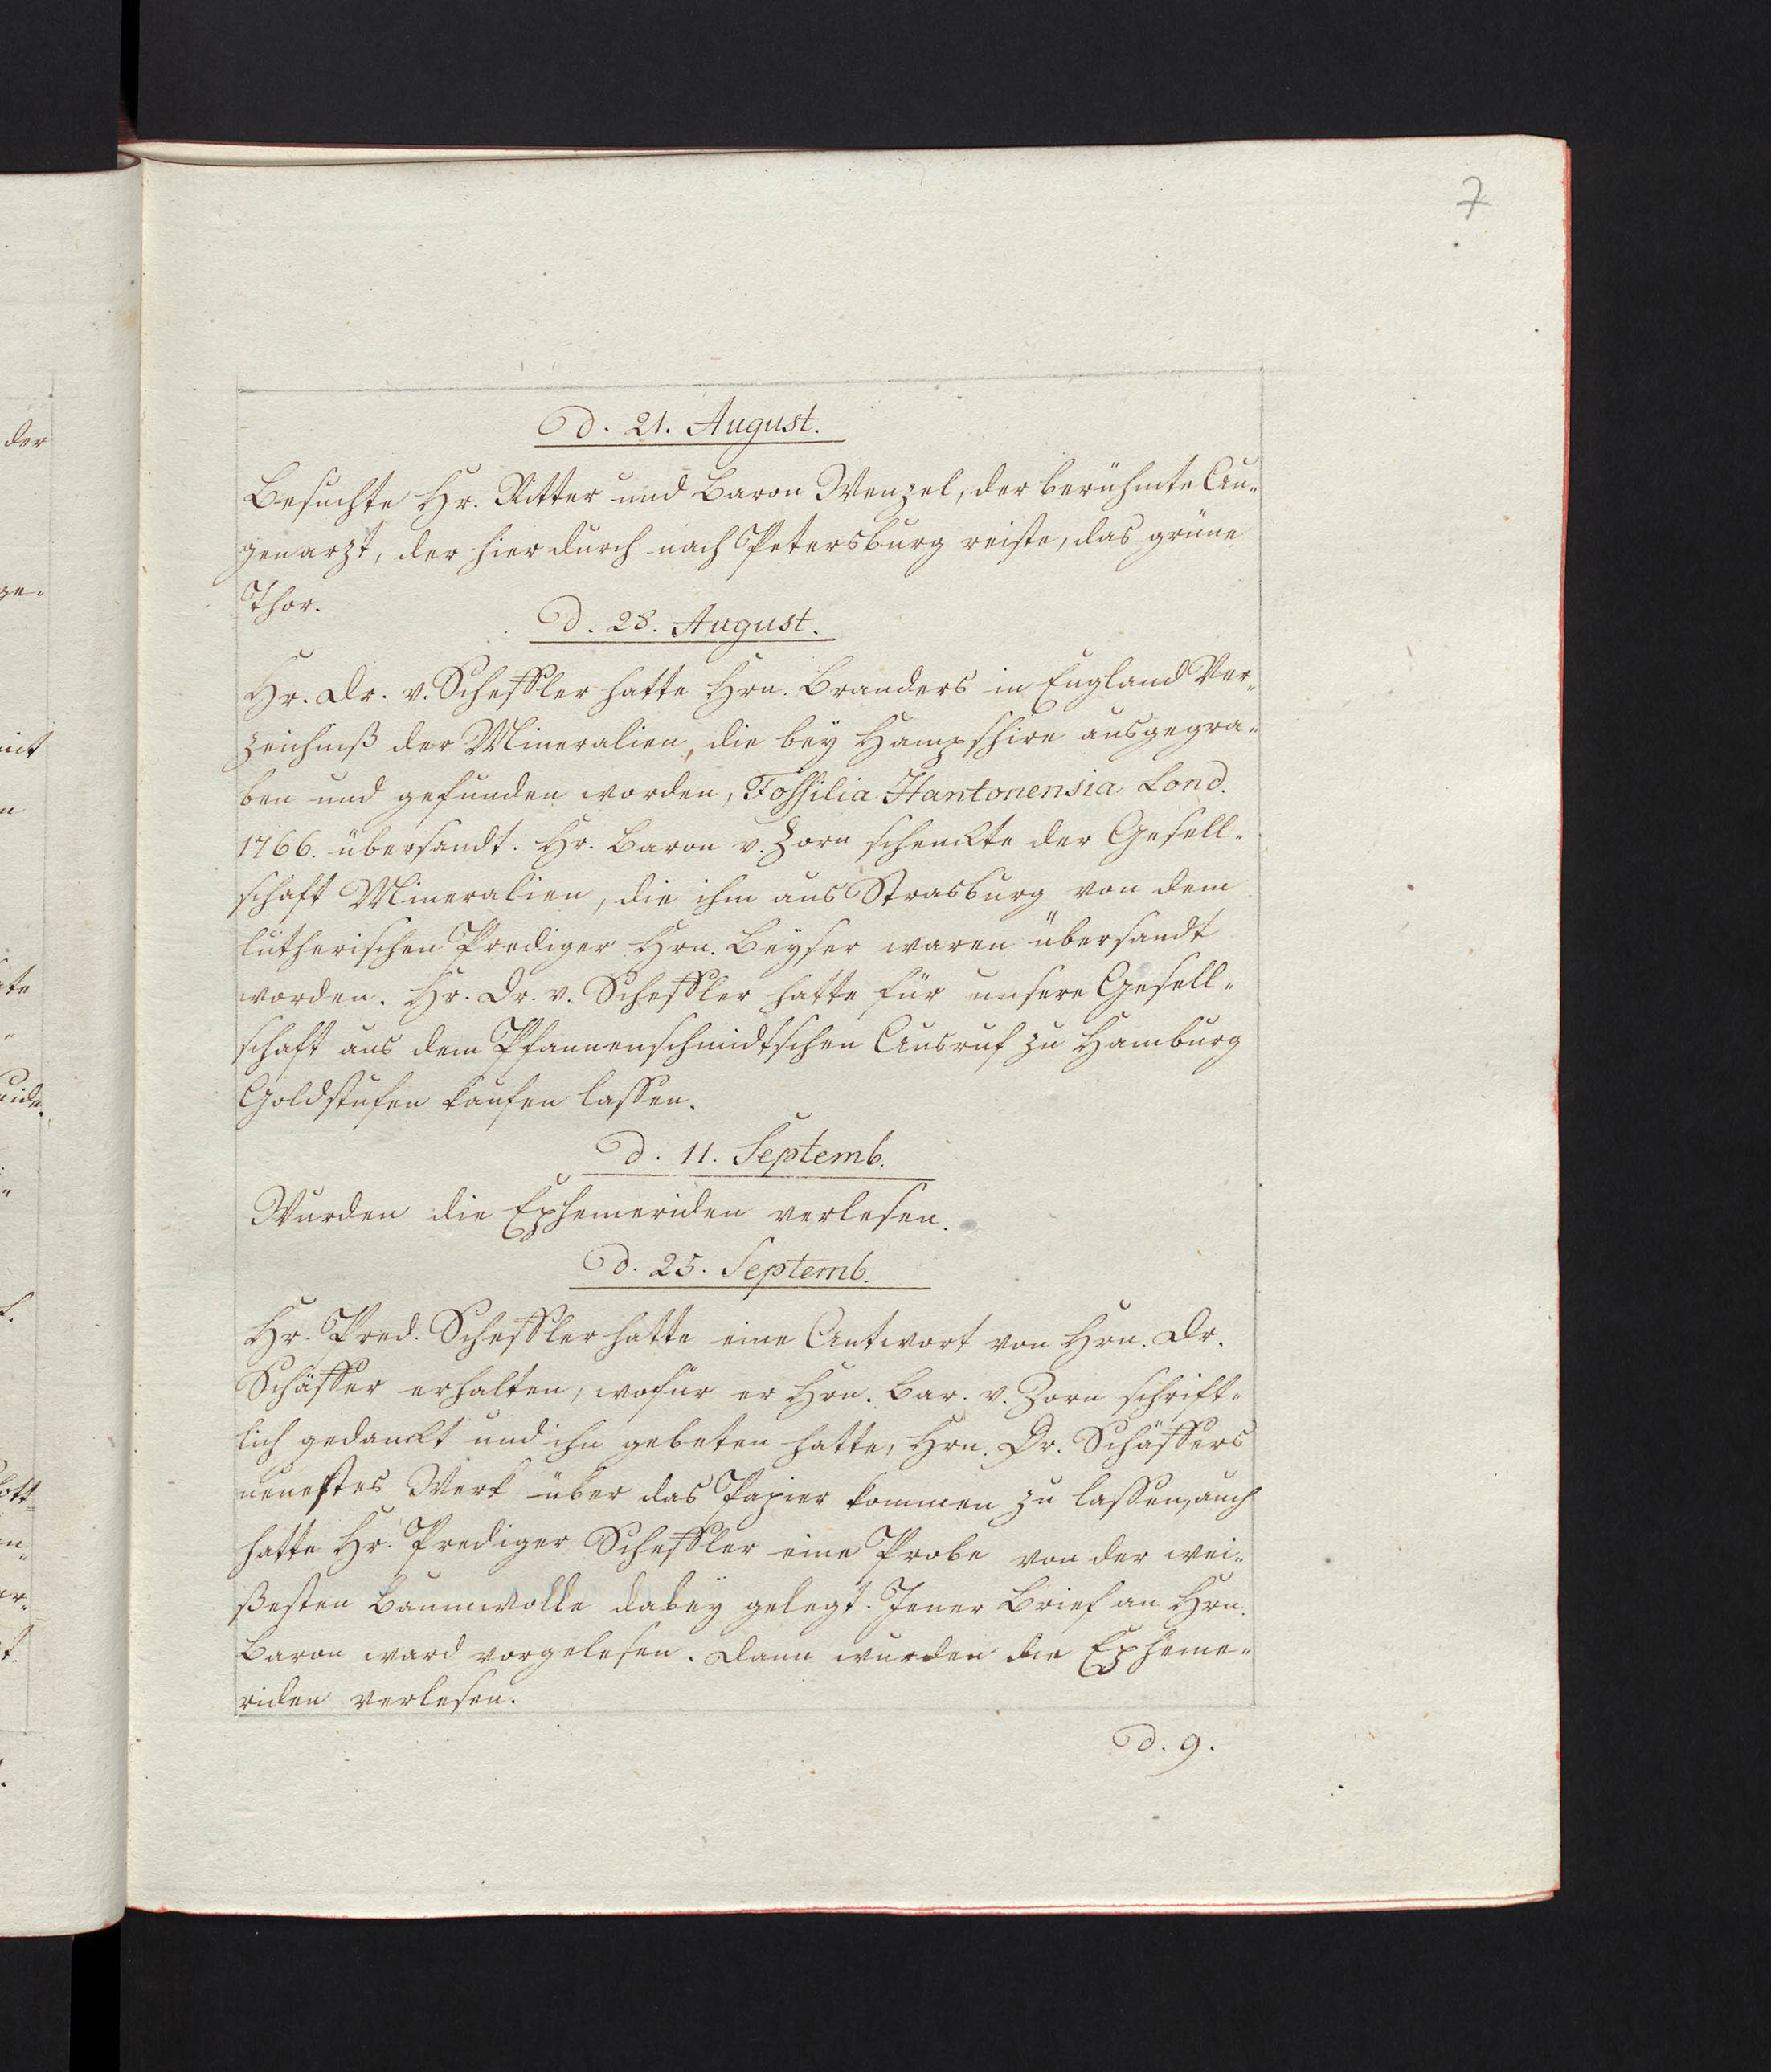 7
d. 21. August.
Besuchte Hr. Ritter und Baron Wenzel, der berühmte Au-
genarzt, der hierdurch nach Petersburg reiste, das grüne
Thor.
d. 28. August.
Hr. Dr. v. Scheffler hatte Hrn. Branders in England Ver-
zeichniß der Mineralien, die bey Hampshire ausgegra-
ben und gefunden worden, Fossilia Hantonensia Lond.
1766. übersandt. Hr. Baron v. Zorn schenckte der Gesell-
schaft Mineralien, die ihm aus Strasburg von dem
lutherischen Prediger Hrn. Beyser waren übersandt
worden. Hr. Dr. v. Scheffler hatte für unsere Gesell-
schaft aus dem Pfannenschmidtschen Ausruf zu Hamburg
Goldstufen kaufen lassen.
d. 11. Septemb.
Wurden die Ephemeriden verlesen.
d. 25. Septemb.
Hr. Pred. Scheffler hatte eine Antwort von Hrn. Dr.
Schäffer erhalten, wofür er Hrn. Bar. v. Zorn schrift-
lich gedanckt und ihn gebeten hatte, Hrn. Dr. Schäffers
neuestes Werk über das Papier kommen zu lassen, auch
hatte Hr. Prediger Scheffler eine Probe von der wei-
ßesten Baumwolle dabey gelegt. Jener Brief an Hrn.
Baron ward vorgelesen. Dann wurden die Epheme-
riden verlesen.
d. 9.